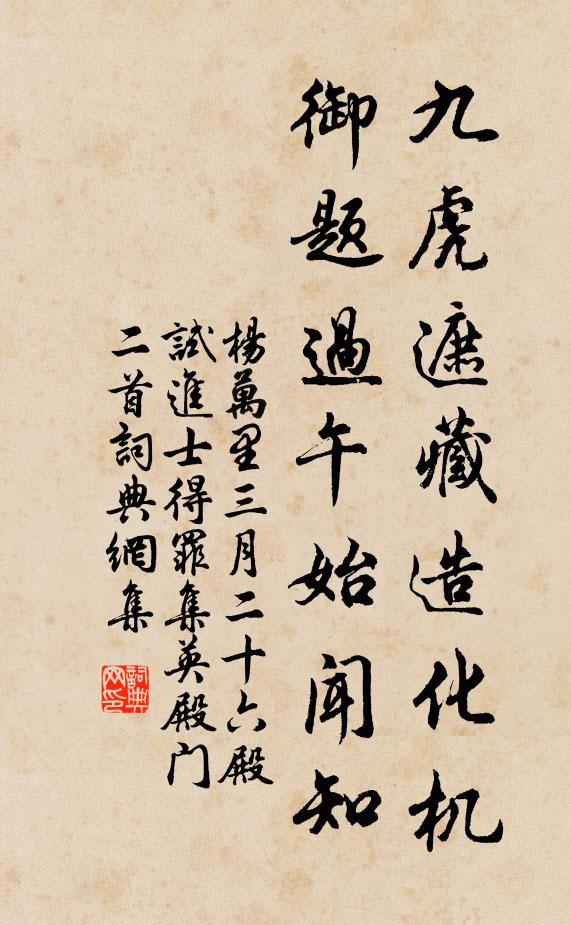 九虎遮藏造化机
御题過午始闻知
楊萬里三月二十六殿
試進士得罪集英殿门
二首詞典網集
詞典网印